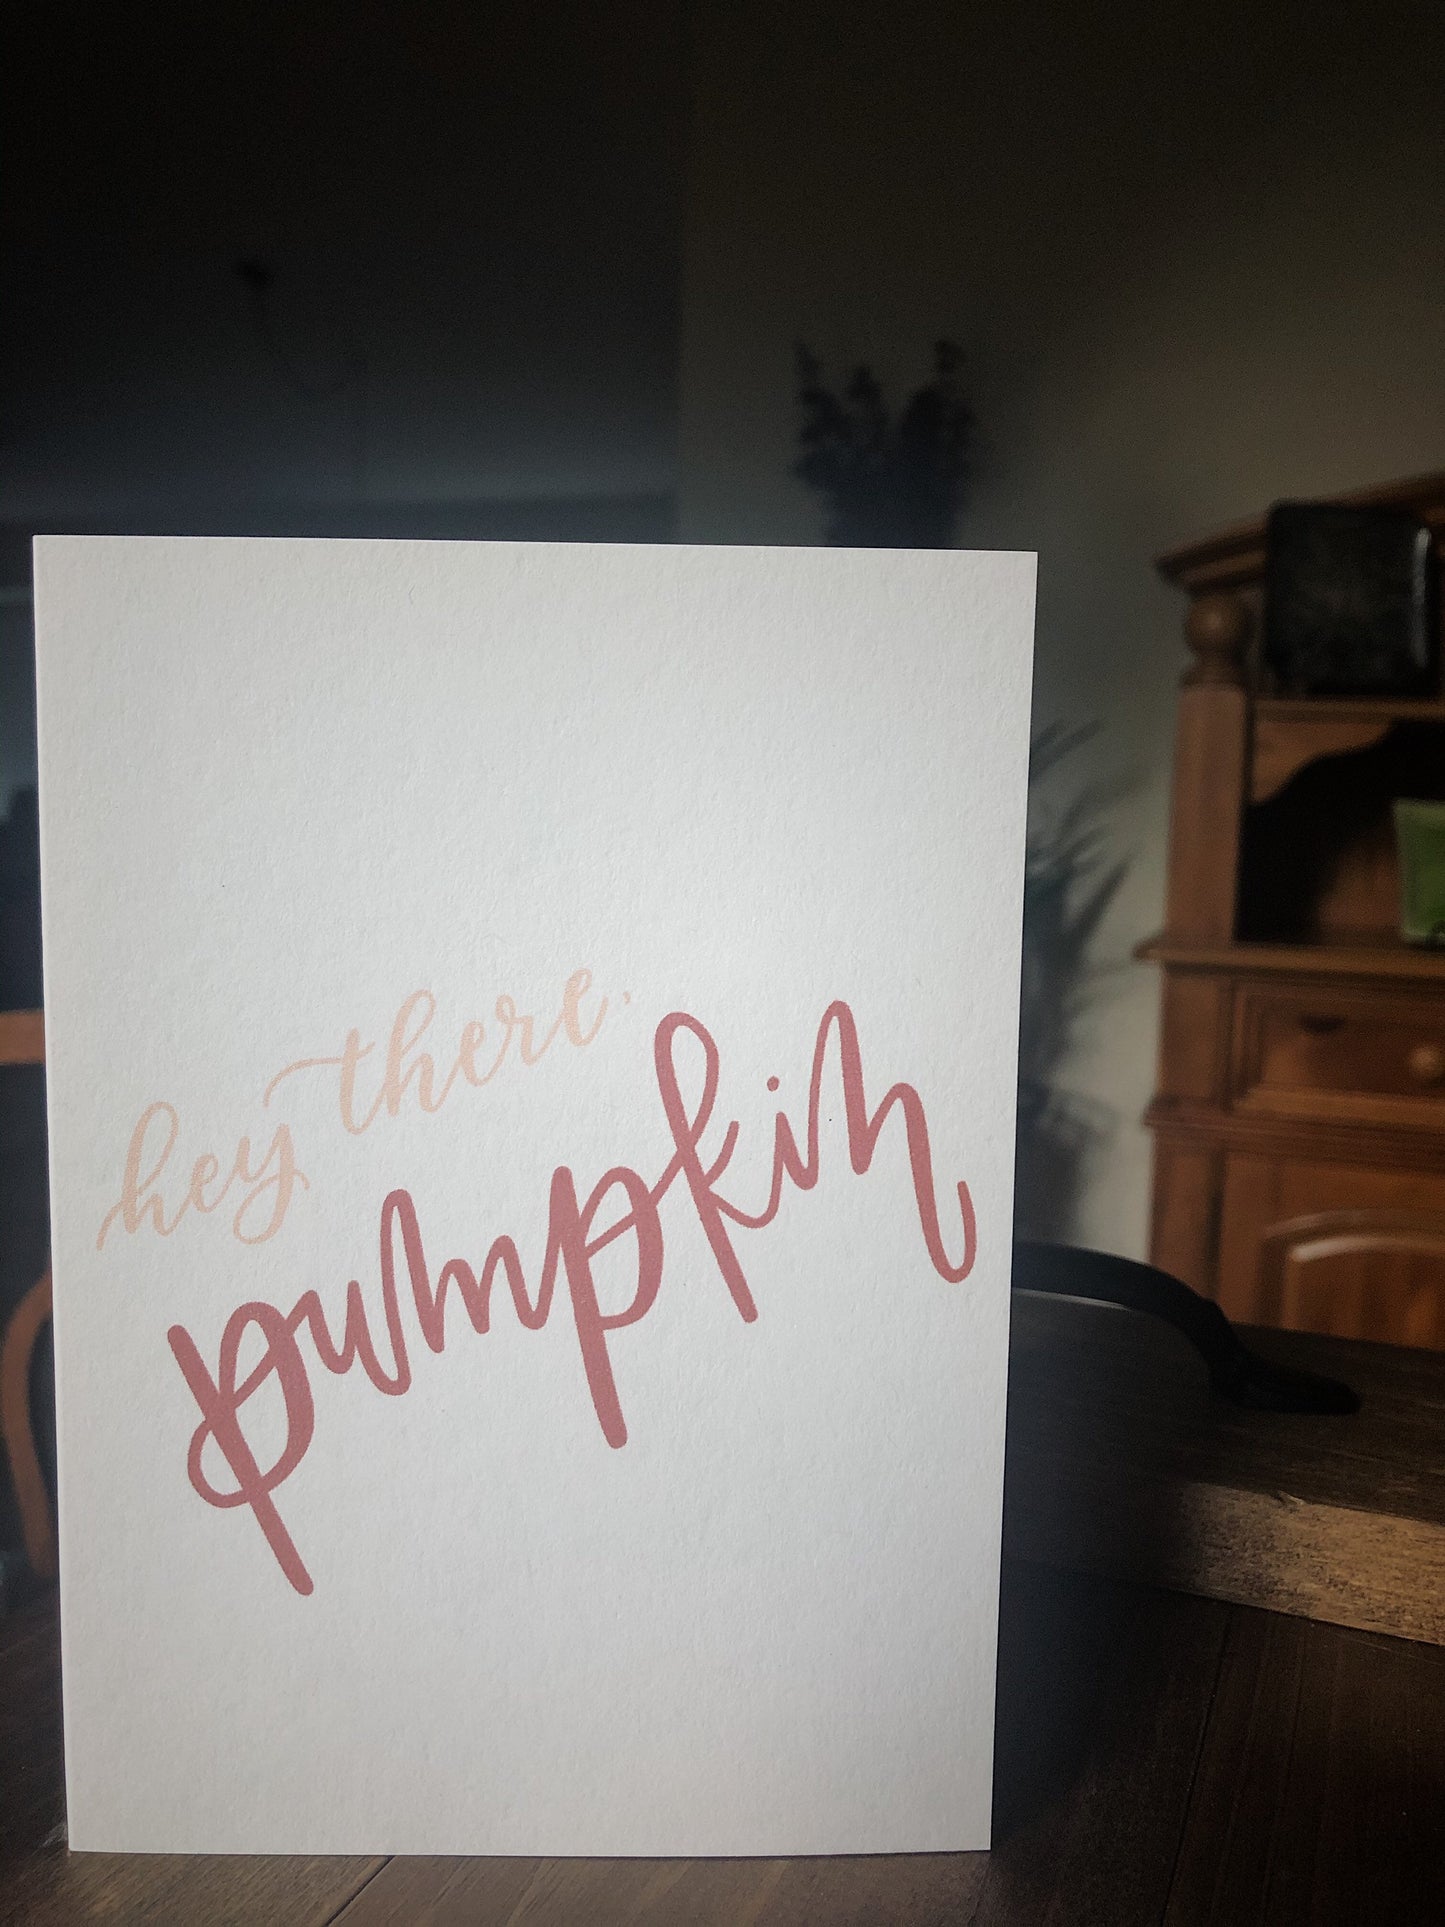 hey there,
pumpkin